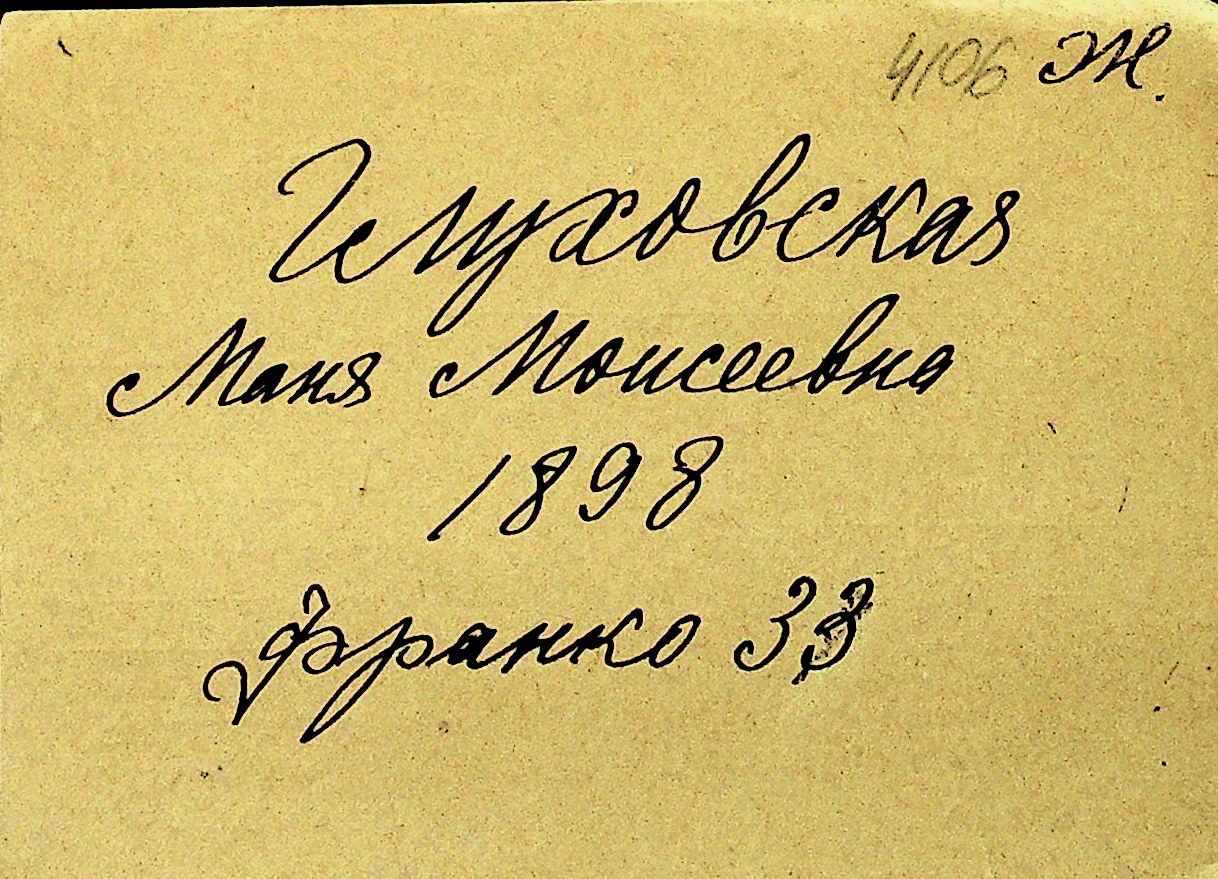 4106 Ж.
Глуховская
Маня Моисеевна
1898
Франко 33